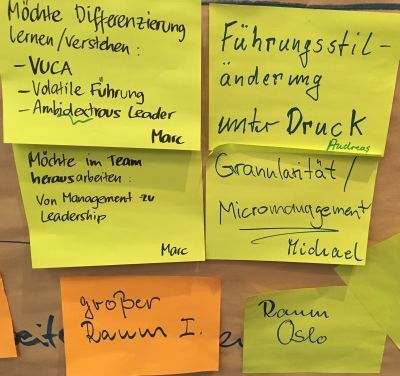 Möchte Differenzierung
lernen/verstehen:
- VUCA
- Volatile Führung
- Ambidextrous Leader
Marc
Führungsstil-
änderung
unter Druck
Andreas
Möchte im Team
herausarbeiten:
Von Management zu
Leadership
Marc
Granularität/
Micromanagement
Michael
großer
Raum I.
Raum
Oslo